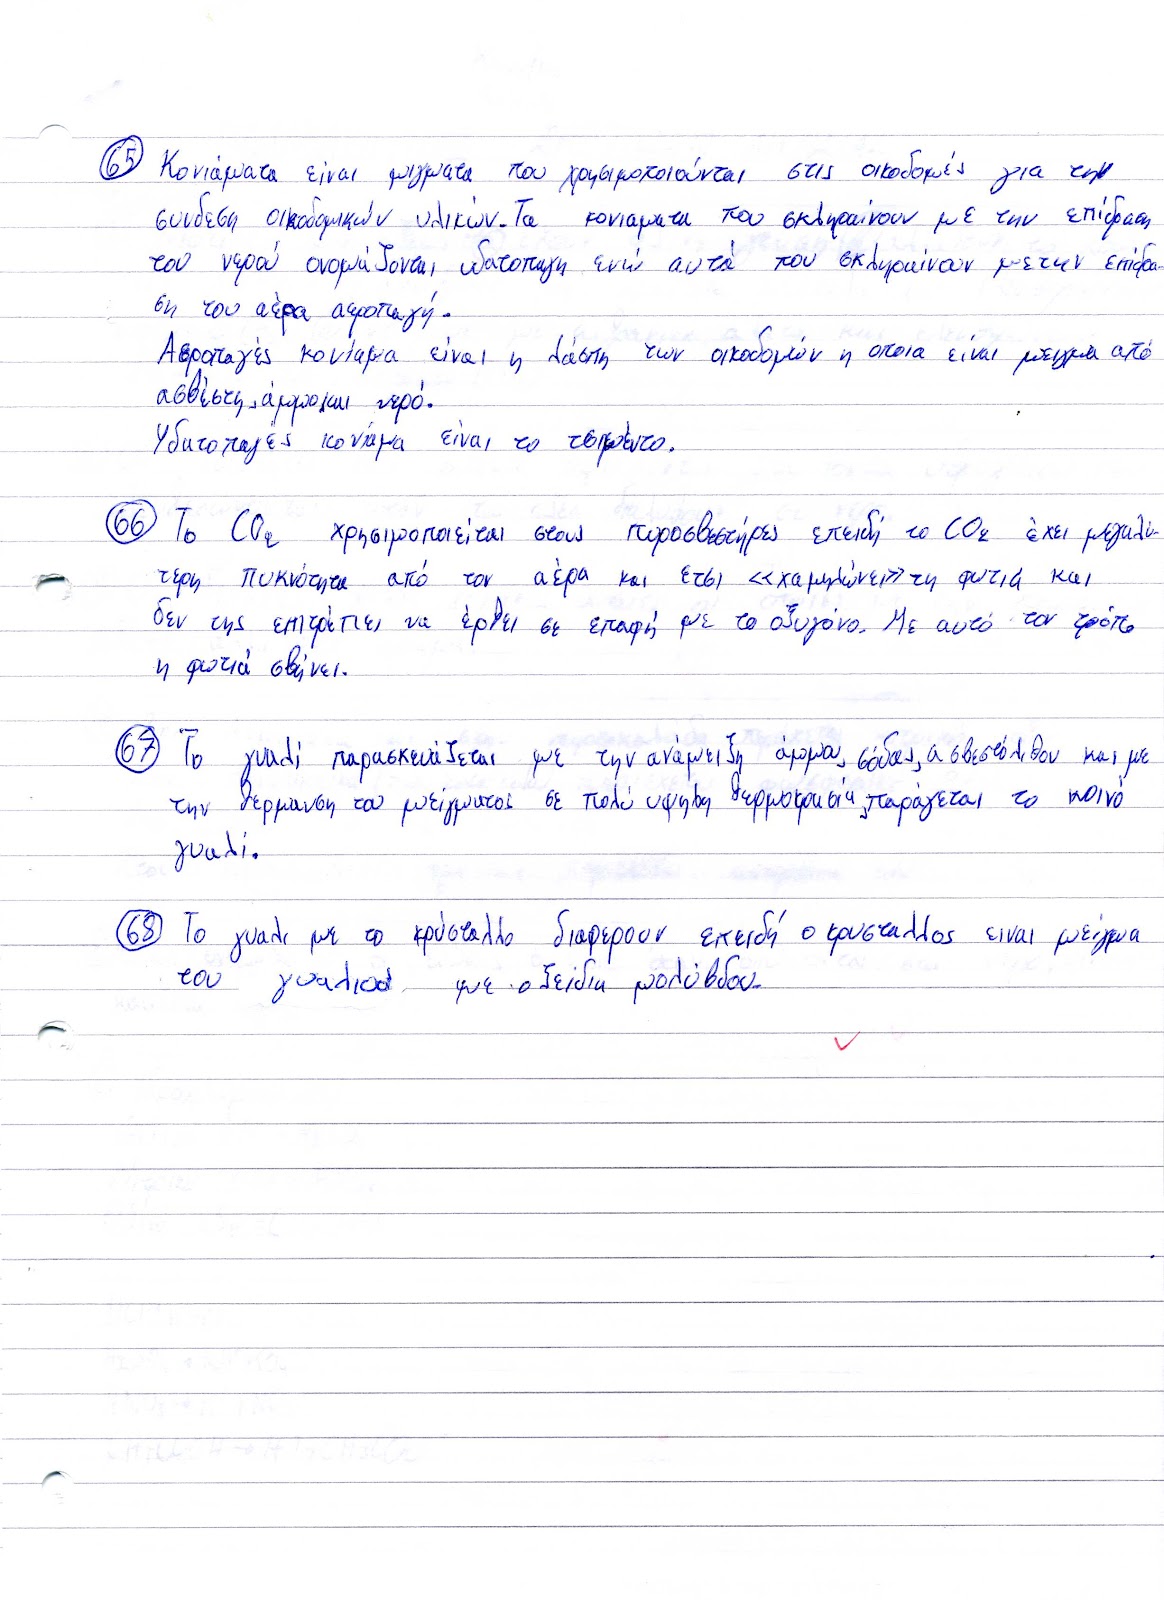 65 Κονιάματα είναι μιγματα που χρησιμοποιούνται στις οικοδομές για την
συνδεση οικοδομικών υλικών. Τα κονιαματα που σκληραίνουν με την επίδραση
του νερού ονομάζονται υδατοπαγη ενώ αυτά που σκληραίνουν με την επίδρα-
ση του αέρα αεροπαγή.
Αεροπαγές κονίαμα είναι η λάσπη των οικοδομών η οποια είναι μειγμα από
ασβέστη, άμμο, και νερό.
Υδατοπαγές κονίαμα είναι το τσιμέντο.
66 Το CO2 χρησιμοποιείται στους πυροσβεστήρες επειδή το CO2 έχει μεγαλύ-
τερη πυκνότητα από τον αέρα και ετσι <<χαμηλώνει>> τη φωτιά και
δεν της επιτρέπει να έρθει σε επαφή με το οξυγόνο. Με αυτό τον τρόπο
η φωτιά σβήνει.
67 Το γυαλί παρασκευάζεται με την ανάμειξη άμμου, σόδας, ασβεστόλιθου και με
την θερμανση του μείγματος σε πολύ υψηλη θερμοκρασία, παράγεται το κοινό
γυαλί.
68 Το γυαλι με το κρύσταλλο διαφερουν επειδή ο κρυσταλλος ειναι μείγμα
του γυαλιού με οξείδια μολύβδου.